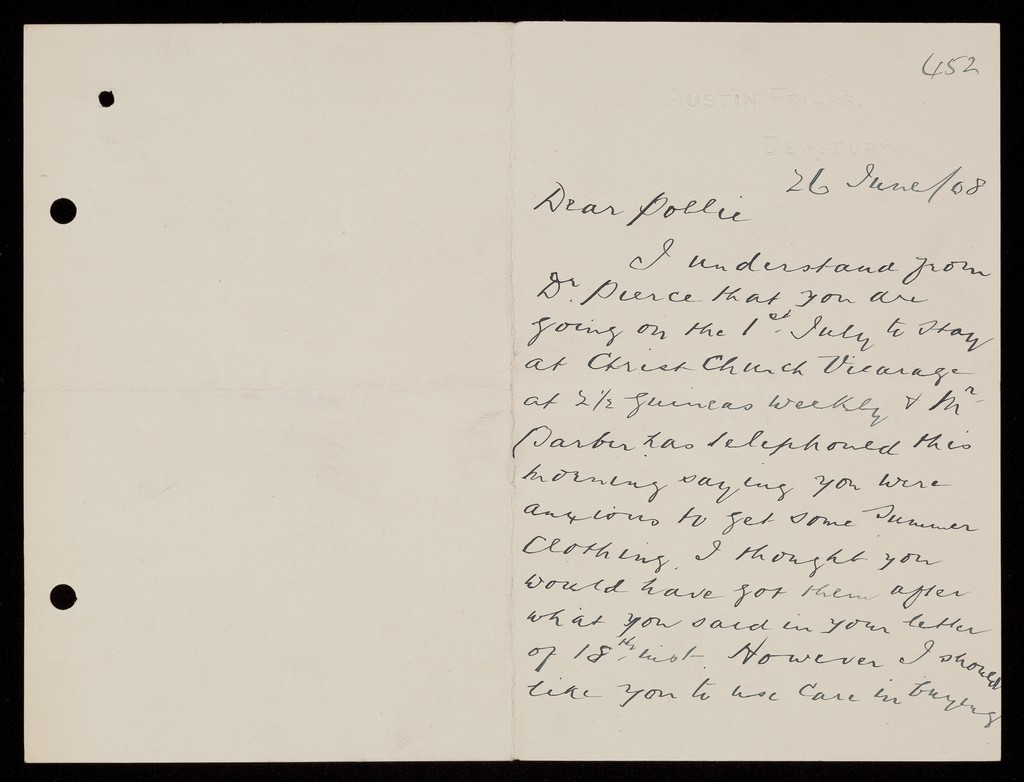 452
AUSTIN FRIARS.
DEWSBURY.
26 June/08
Dear Pollie
I understand from
Dr. Pierce that you are
going on the 1st. July to stay
at Christ Church Vicarage
at 2½ guineas weekly & Mr
Barber has telephoned this
morning saying you were
anxious to get some summer
Clothing. I thought you
would have got them after
what you said in your letter
of 18th. inst. However I should
like you to use care in buying